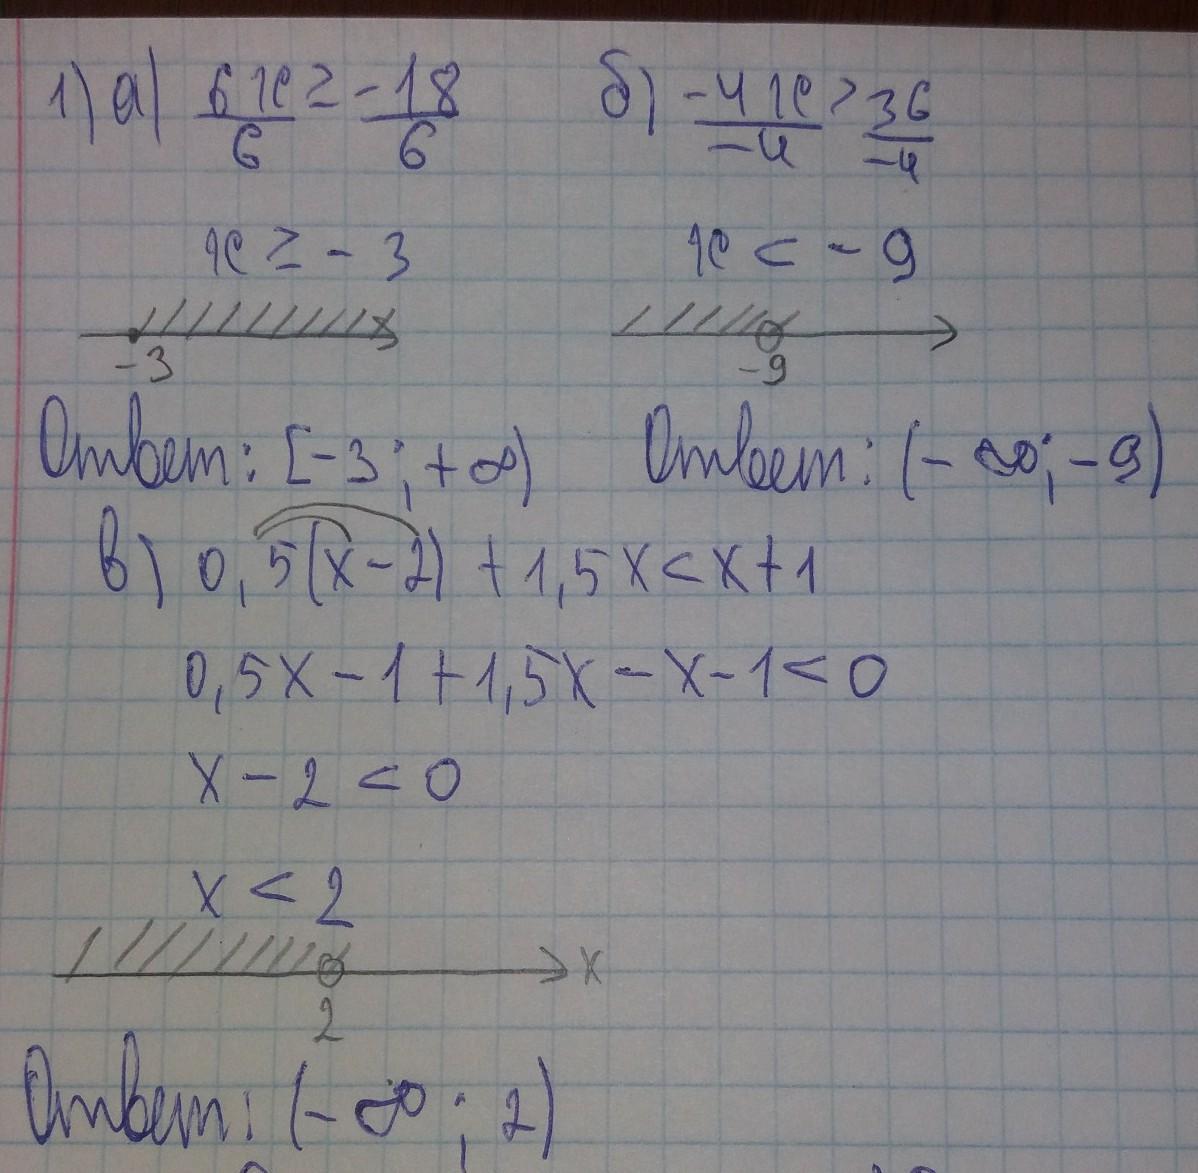 1) а) 6x ≥ -18 б) -4x > 36
6 6 -4 -4
x ≥ -3 x < -9
-3 -9
Ответ: [-3; +∞) Ответ: (-∞; -9)
в) 0,5(x-2) + 1,5x < x+1
0,5x - 1 + 1,5x - x - 1 < 0
x - 2 < 0
x < 2
x
2
Ответ: (-∞; 2)